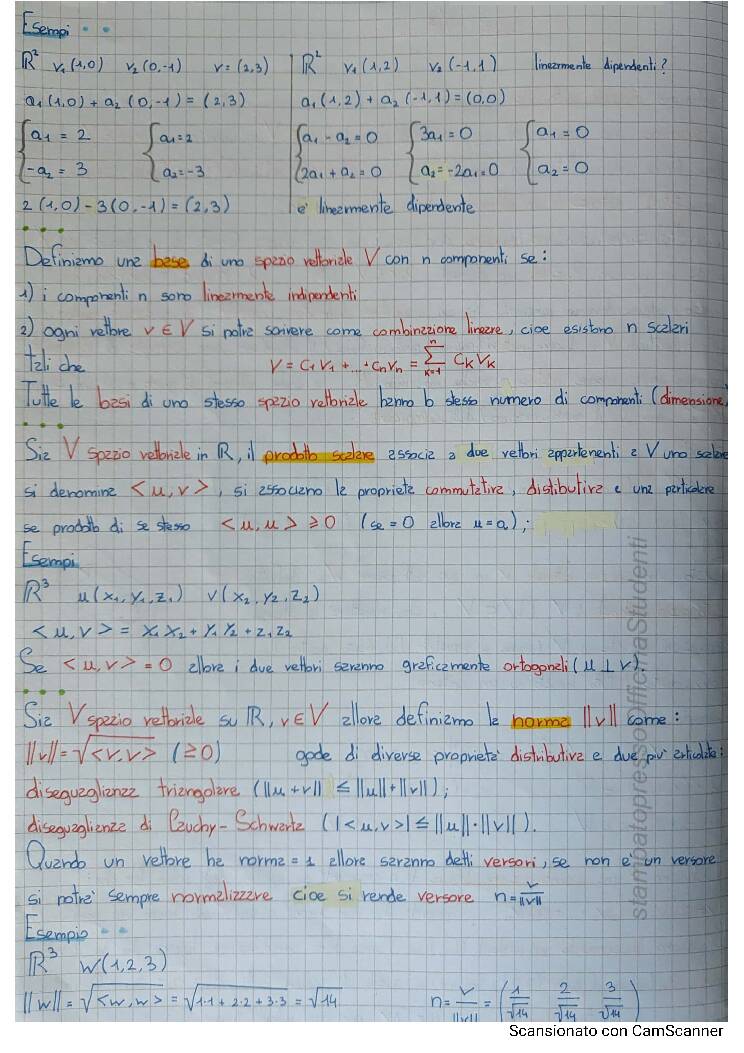 Esempi
R² v₁(1,0) v₂(0,-1) v=(2,3)
a₁(1,0)+a₂(0,-1)=(2,3)
{a₁=2 {a₁=2
-a₂=3 a₂=-3
2(1,0)-3(0,-1)=(2,3)
R² v₁(1,2) v₂(-1,1) linearmente dipendenti?
a₁(1,2)+a₂(-1,1)=(0,0)
{a₁-a₂=0 {3a₁=0 {a₁=0
2a₁+a₂=0 a₂=-2a₁=0 a₂=0
e' linearmente dipendente
Definiamo una base di uno spazio vettoriale V con n componenti se:
1) i componenti n sono linearmente indipendenti
2) ogni vettore v∈V si potrà scrivere come combinazione lineare, cioe esistono n scalari
tali che V=C₁V₁+...+CnVn=∑ₖ₌₁ⁿ CₖVₖ
Tutte le basi di uno stesso spazio vettoriale hanno lo stesso numero di componenti (dimensione)
Sia V spazio vettoriale in R, il prodotto scalare associa a due vettori appartenenti a V uno scalare
si denomina <u,v>, si associano le proprietà commutativa, distributiva e una particolare
se prodotto di se stesso <u,u>≥0 (se=0 allora u=0);
Esempi
R³ u(x₁,y₁,z₁) v(x₂,y₂,z₂)
<u,v>=x₁x₂+y₁y₂+z₁z₂
Se <u,v>=0 allora i due vettori saranno graficamente ortogonali(u⊥v).
Sia V spazio vettoriale su R, v∈V allora definiamo la norma ||v|| come:
||v||=√<v,v> (≥0) gode di diverse proprieta' distributiva e due piu' articolate:
diseguaglianza triangolare (||u+v||≤||u||+||v||);
diseguaglianza di Cauchy-Schwartz (|<u,v>|≤||u||·||v||).
Quando un vettore ha norma=1 allora saranno detti versori, se non e' un versore
si potra' sempre normalizzare cioe si rende versore n=v/||v||
Esempio
R³ w(1,2,3)
||w||=√<w,w>=√1·1+2·2+3·3=√14 n=v/||v||=(1/√14 2/√14 3/√14)
stampatopressoOfficinaStudenti
Scansionato con CamScanner